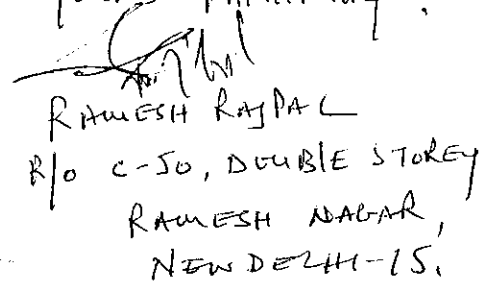 RAMESH RAJPAL
R/o C-50, DOUBLE STOREY
RAMESH NAGAR,
NEW DELHI-15.